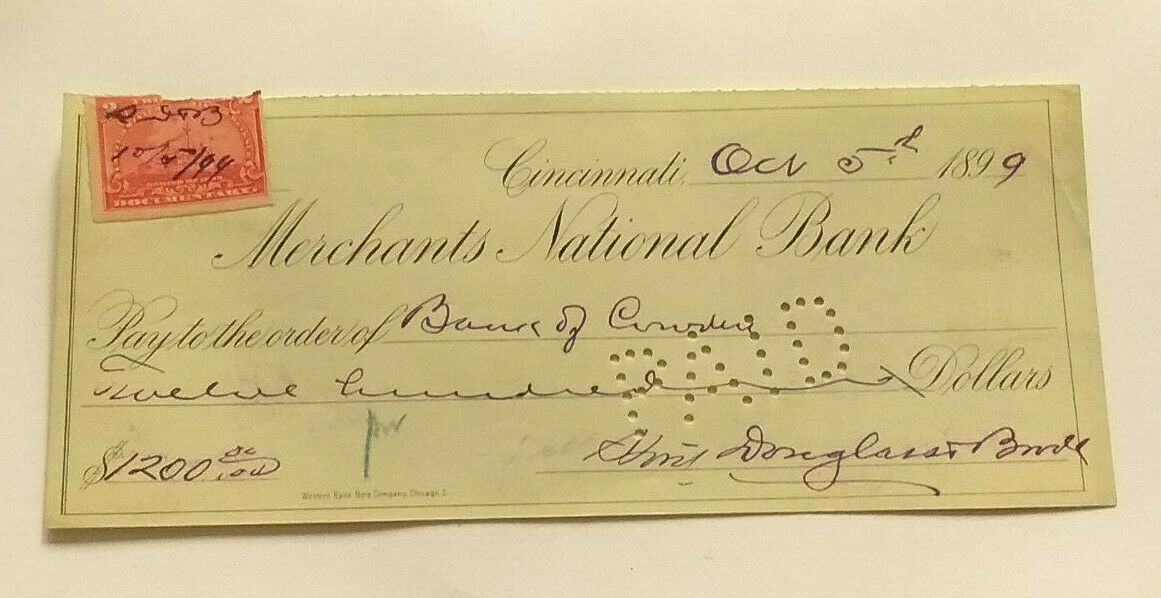 2 2
D & B
10/5/99
DOCUMENTARY.
Cincinnati, Oct 5th 1899
Merchants National Bank
Pay to the order of Bank of Corydon
Twelve hundred Dollars
PAID
$1200.00/100
Douglass & Brode
Western Bank Note Company, Chicago.